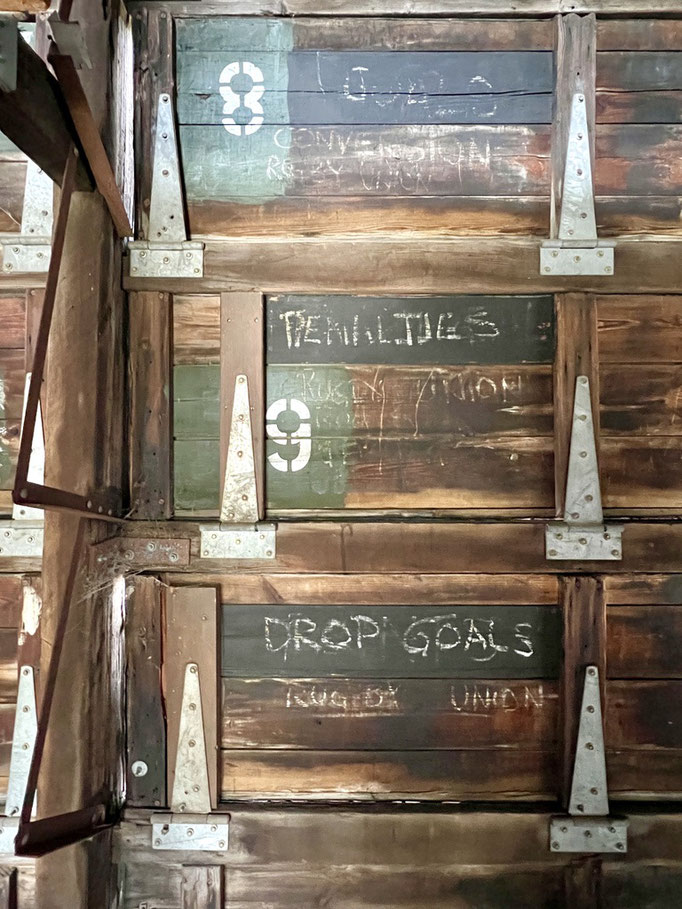 8
CONVERSION
RUGBY UNION
PENALTIES
RUGBY UNION
9
DROP GOALS
RUGBY UNION